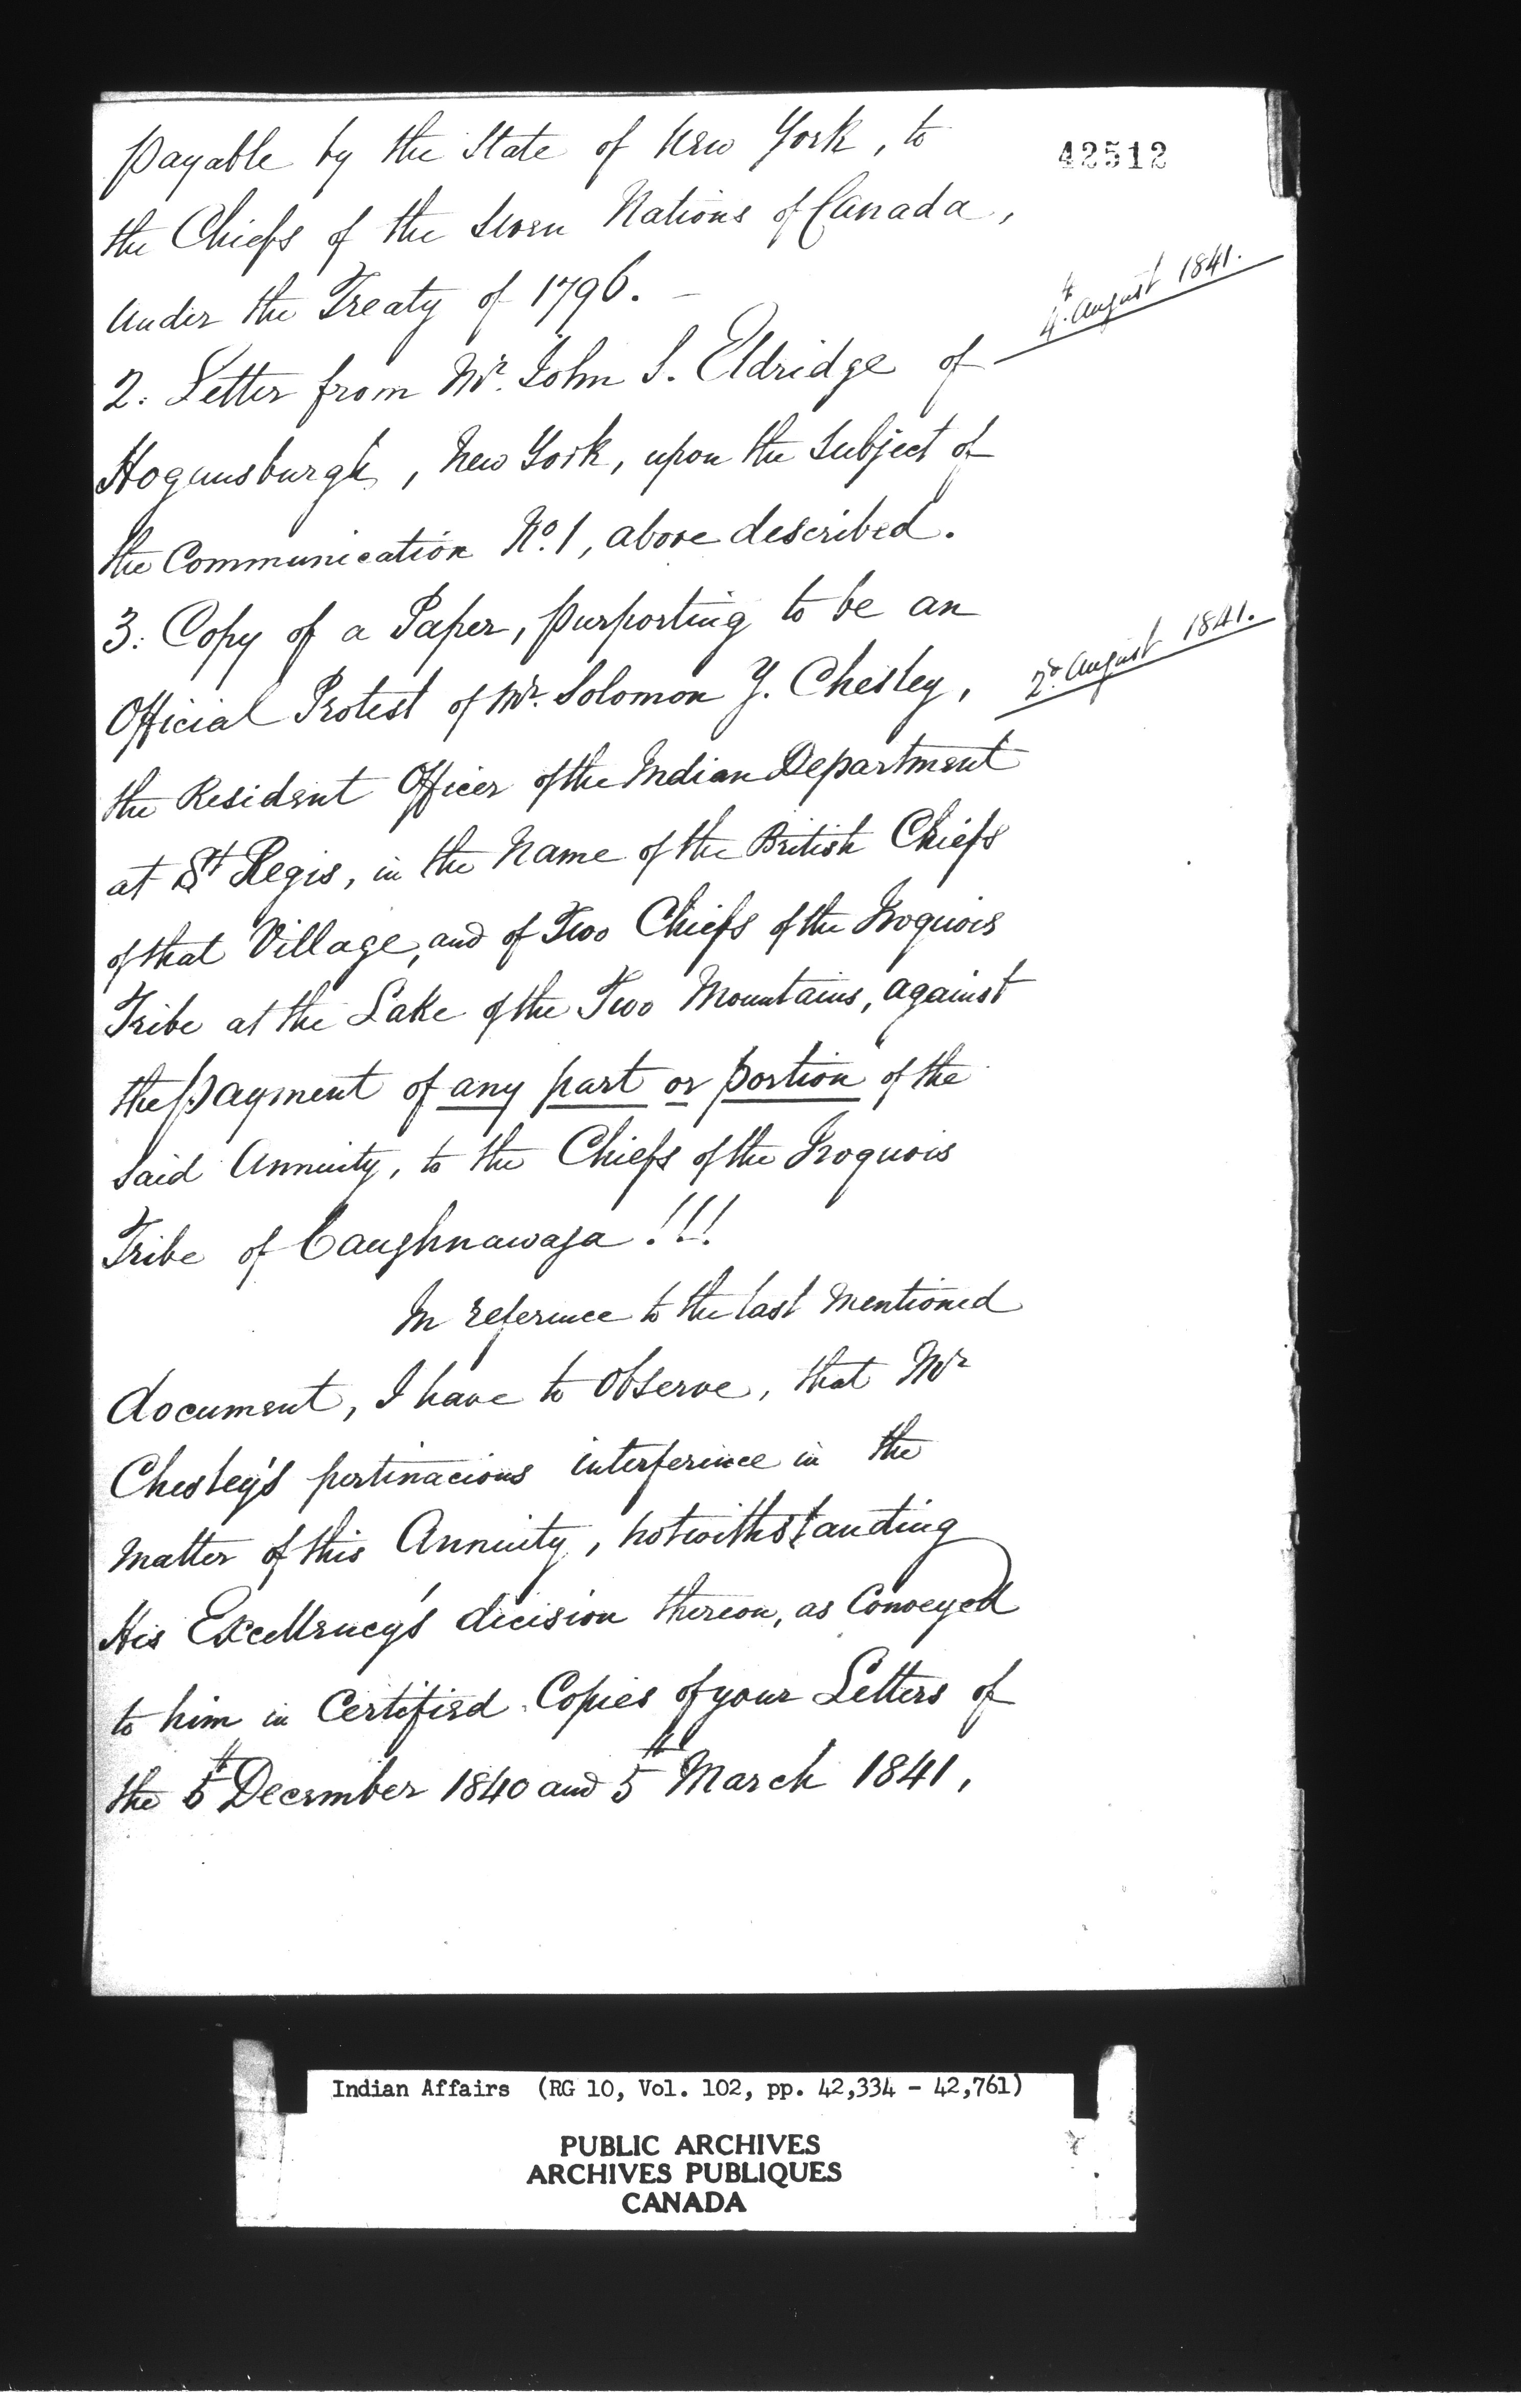 42512
payable by the State of New York, to
the Chiefs of the Seven Nations of Canada,
under the Treaty of 1796. –
4th August 1841.
2. Letter from Mr. John S. Eldridge of
Hogansburgh, New York, upon the subject of
the Communication No. 1, above described.
3. Copy of a Paper, purporting to be an
2d August 1841.
Official Protest of Mr. Solomon Y. Chesley,
the Resident Officer of the Indian Department
at St Regis, in the Name of the British Chiefs
of that Village, and of Two Chiefs of the Iroquois
Tribe at the Lake of the Two Mountains, against
the payment of any part or portion of the
said Annuity, to the Chiefs of the Iroquois
Tribe of Caughnawaga!!!
In reference to the last mentioned
document, I have to observe, that Mr
Chesley's pertinacious interference in the
matter of this Annuity, notwithstanding
His Excellency's decision thereon, as Conveyed
to him in Certified Copies of your Letters of
the 5th December 1840 and 5th March 1841,
Indian Affairs (RG 10, Vol. 102, pp. 42,334 - 42,761)
PUBLIC ARCHIVES
ARCHIVES PUBLIQUES
CANADA